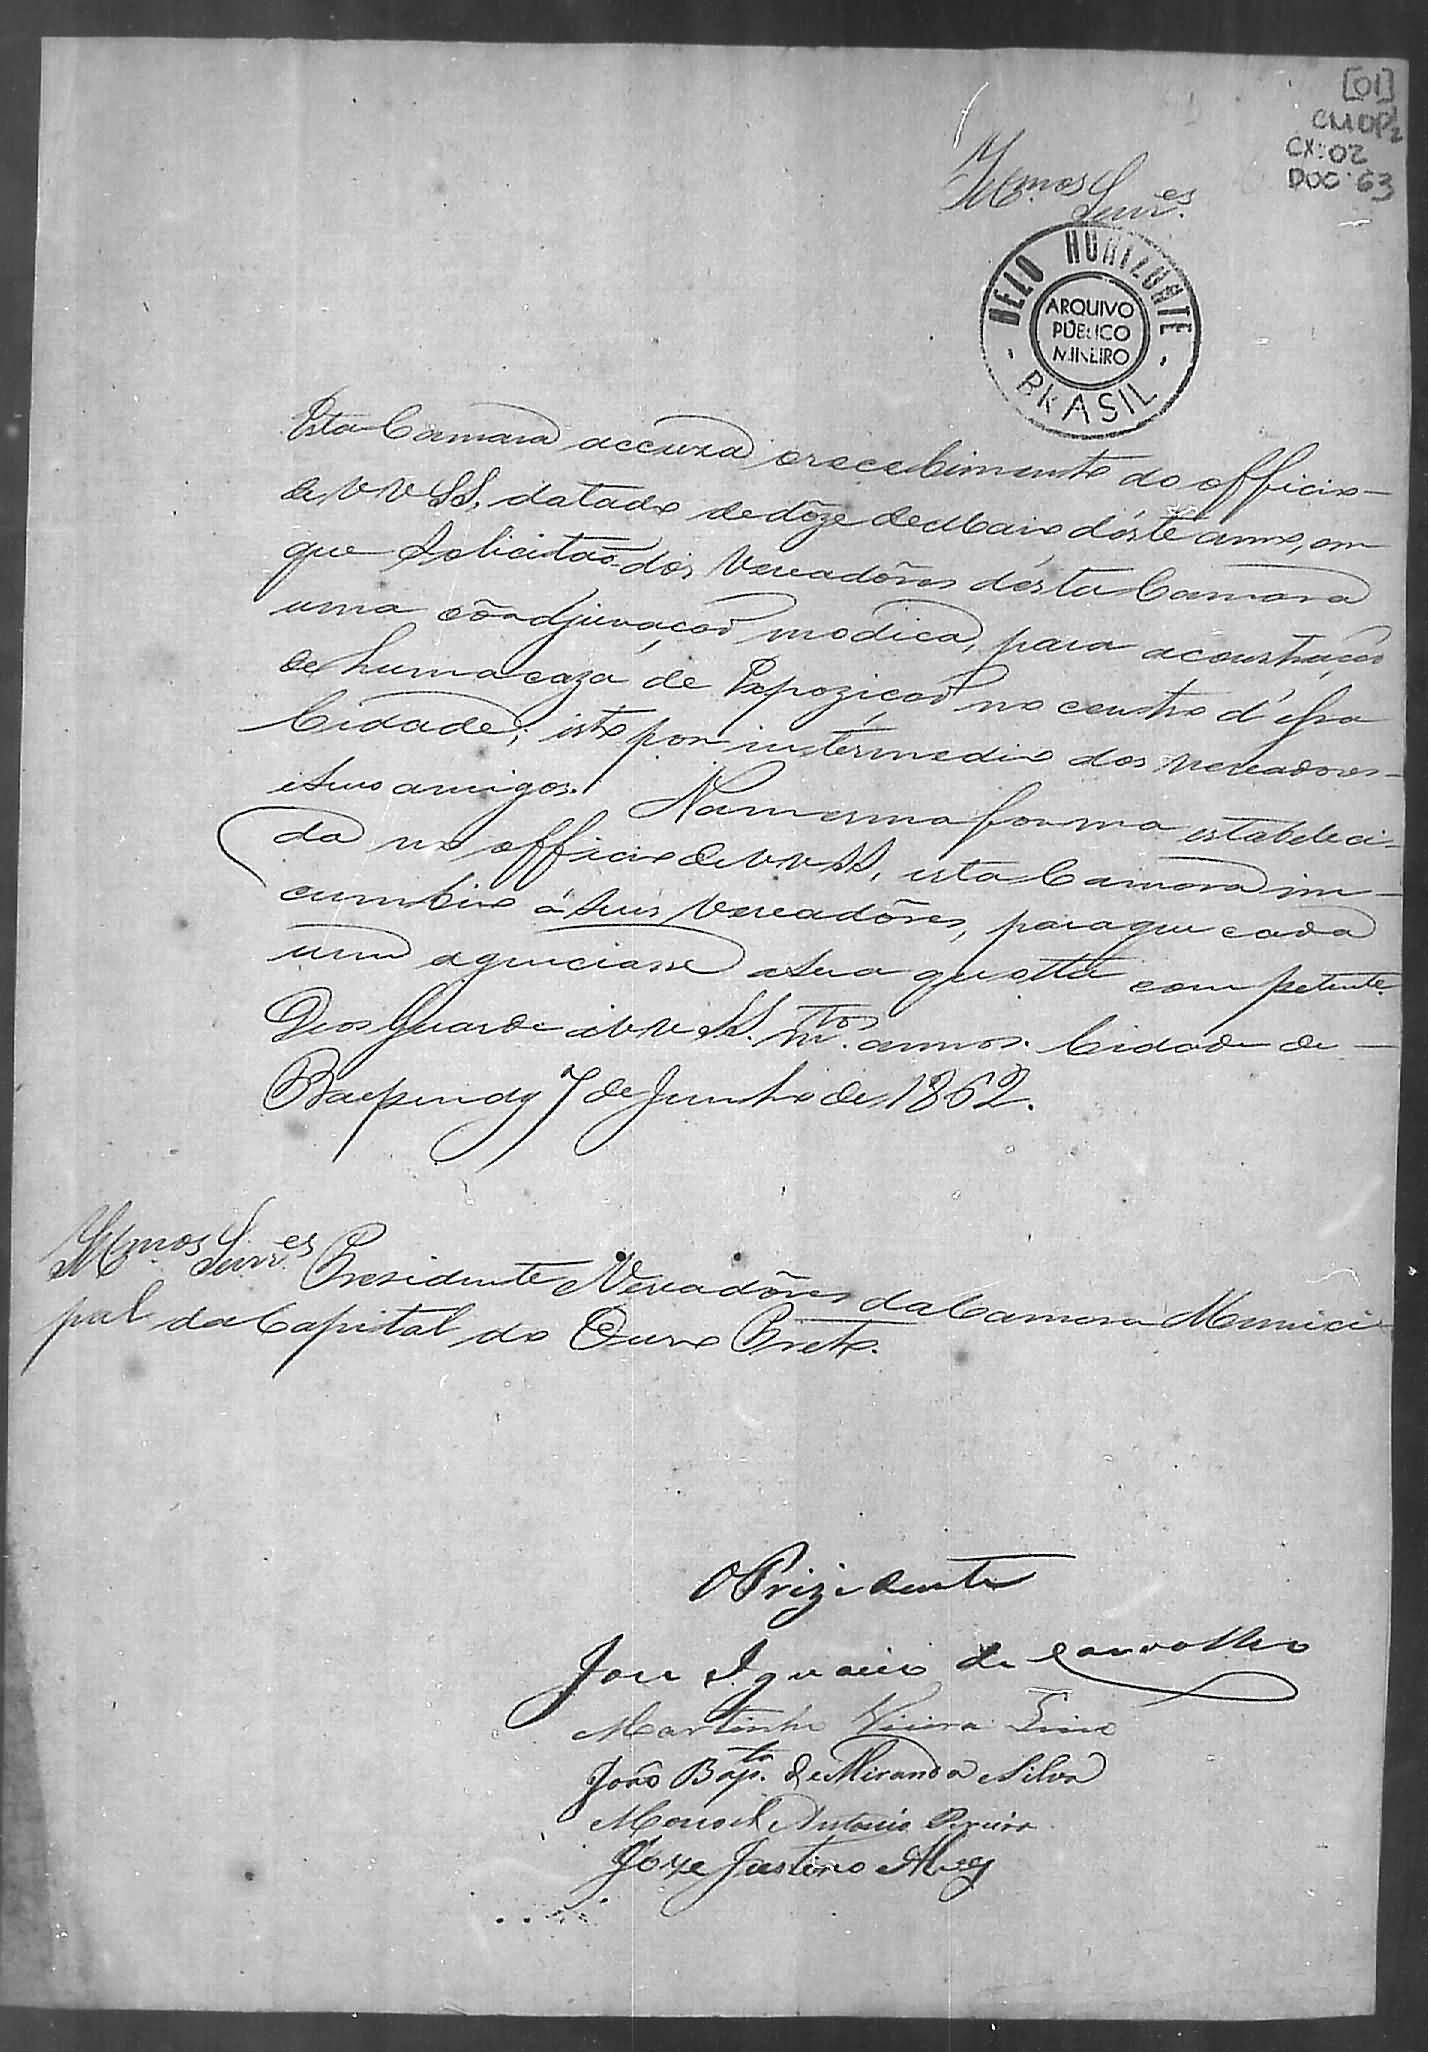 [01]
CMOP 1/2
CX: 02
DOC: 63
Illmos Senres.
BELO HORIZONTE
ARQUIVO
PÚBLICO
MINEIRO
BRASIL
Esta Camara accuza o recebimento do officio
de VV SS. datado de dôze de Maio d'este anno, em
que solicitão dos Vereadôres d'esta Camara
uma côadjuvação modica, para a construção
de huma caza de Expozição no centro d'essa
Cidade; isto por intermedio dos Vereadores
e seus amigos. Na mesma forma estabeleci-
da no officio de VV SS, esta Camara in-
cumbio á seus Vereadôres, para que cada
um agenciasse a sua quotta competente.
Deos Guarde a VV SS. mtos. annos. Cidade de
Baependy 7 de Junho de 1862.
Illmos Senres Presidente e Vereadôres da Camara Munici-
pal da Capital do Ouro Preto.
O Prizidente
Joze Ignacio de Carvalho
Martinho Vieira
João Bapta. de Miranda e Silva
Manoel Antonio Pereira
Joze Justino Alves